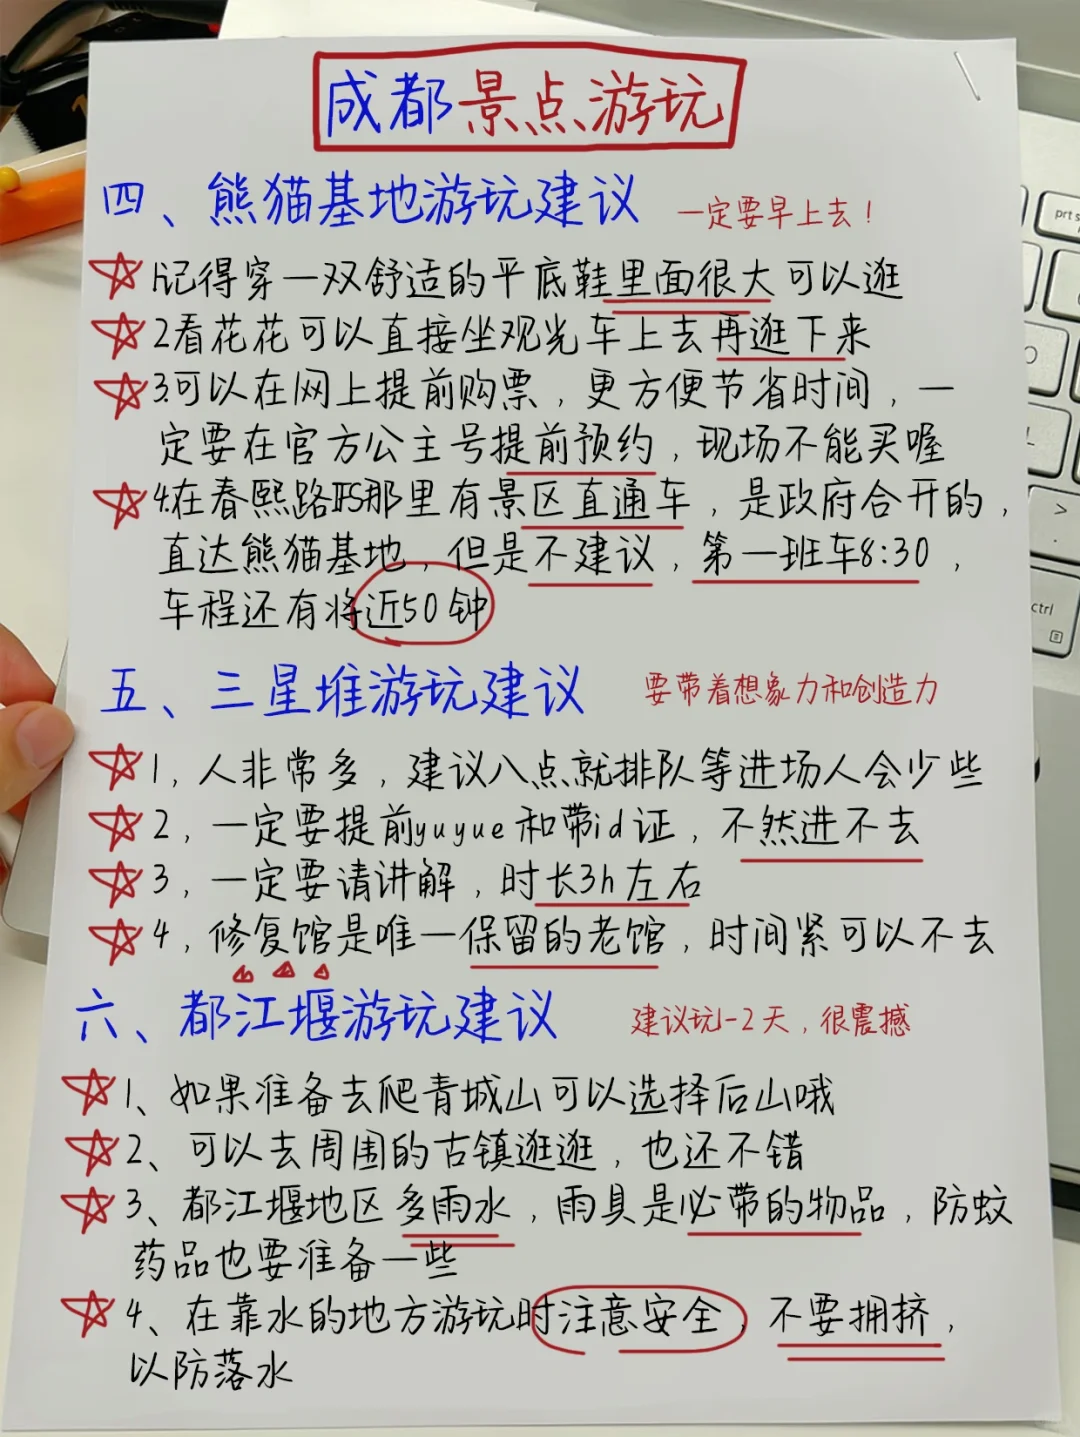 成都景点游玩
四、熊猫基地游玩建议 一定要早上去！
1.记得穿一双舒适的平底鞋里面很大可以逛
2看花花可以直接坐观光车上去再逛下来
3.可以在网上提前购票，更方便节省时间，一
定要在官方公主号提前预约，现场不能买喔
4.在春熙路IFS那里有景区直通车，是政府合开的，
直达熊猫基地，但是不建议，第一班车8:30，
车程还有将近50钟
五、三星堆游玩建议 要带着想象力和创造力
1，人非常多，建议八点就排队等进场人会少些
2，一定要提前yuyue和带id证，不然进不去
3，一定要请讲解，时长3h左右
4，修复馆是唯一保留的老馆，时间紧可以不去
六、都江堰游玩建议 建议玩1-2天，很震撼
1、如果准备去爬青城山可以选择后山哦
2、可以去周围的古镇逛逛，也还不错
3、都江堰地区多雨水，雨具是必带的物品，防蚊
药品也要准备一些
4、在靠水的地方游玩时注意安全，不要拥挤，
以防落水
prt s
O
L
>
.
ctrl